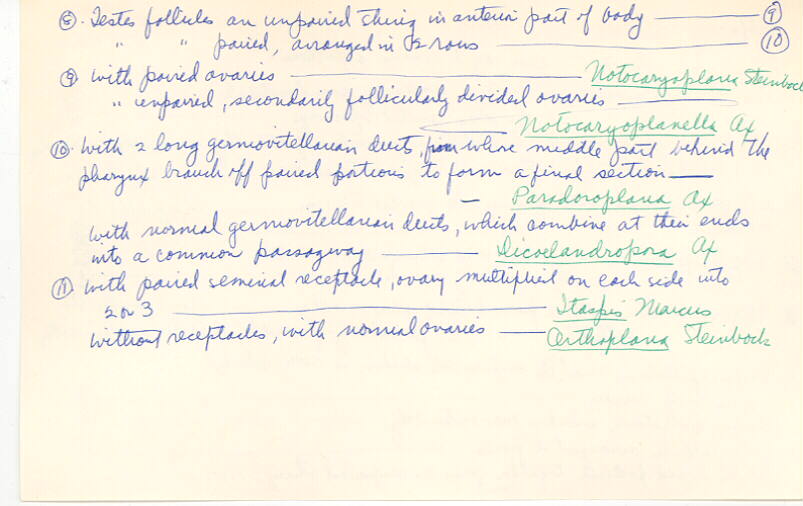 ⑧. Testes follicles an unpaired string in anterior part of body ——— ⑨
" " paired, arranged in 2 rows ——— ⑩
⑨ with paired ovaries ——— Notocaryoplana Steinböck
" unpaired, secondarily follicularly divided ovaries ———
Notocaryoplanella Ax
⑩. With 2 long germovitellarian ducts, from whose middle part behind the
pharynx branch off paired portions to form a final section ——
— Paradoroplana Ax
with normal germovitellarian ducts, which combine at their ends
into a common passageway ——— Dicoelandropora Ax
⑪ with paired seminal receptacle, ovary multiplied on each side into
2 or 3 ——— Itaspis Marcus
without receptacles, with normal ovaries —— Orthoplana Steinbock